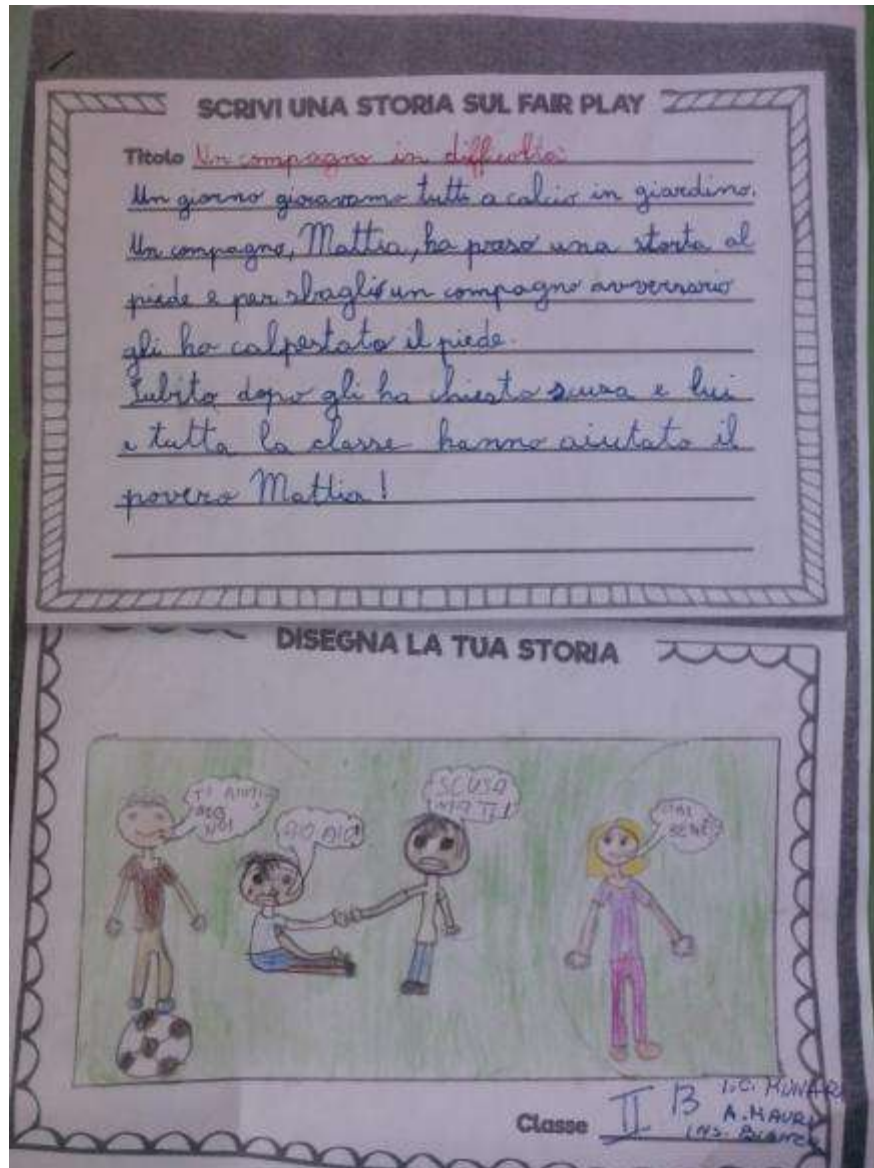 SCRIVI UNA STORIA SUL FAIR PLAY
Titolo Un compagno in difficoltà
Un giorno giocavamo tutti a calcio in giardino.
Un compagno, Mattia, ha preso una storta al
piede e per sbaglio un compagno avversario
gli ha calpestato il piede.
Subito dopo gli ha chiesto scusa e lui
e tutta la classe hanno aiutato il
povero Mattia!
DISEGNA LA TUA STORIA
TI AIUTI
NOI
AIO AIO!
SCUSA
MATTI!
STAI
BENE?
Classe II B
I.C. MUNARI
A. MAURI
INS.